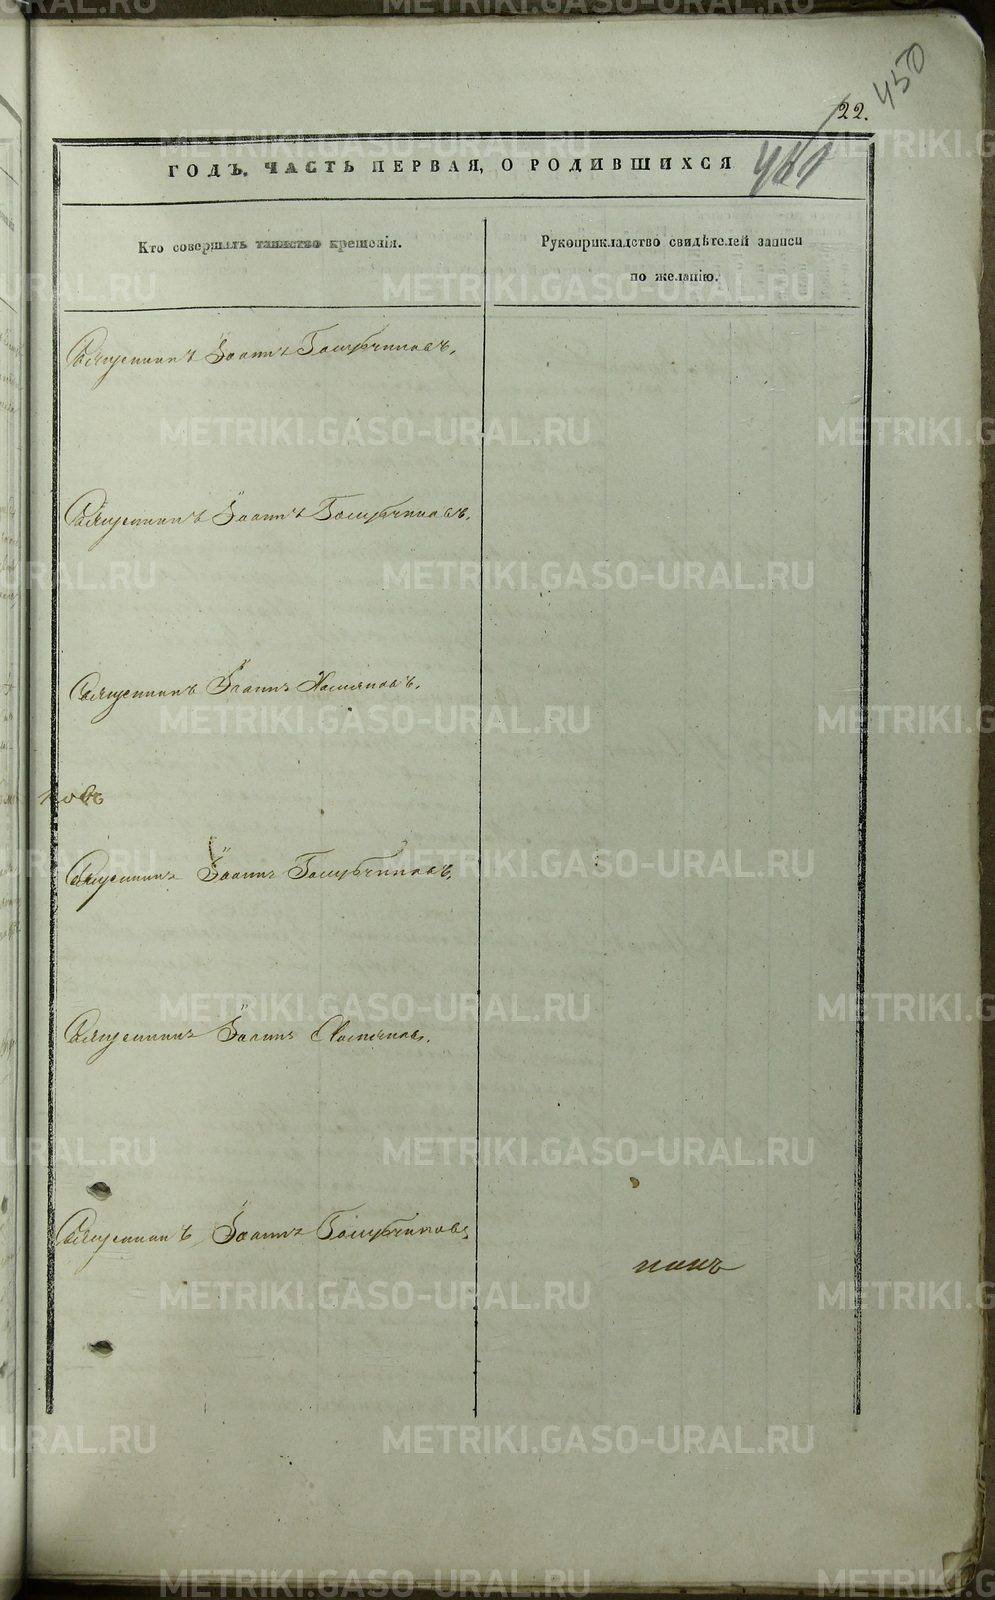 450
22.
ГОДЪ. ЧАСТЬ ПЕРВАЯ, О РОДИВШИХСЯ
Кто совершалъ таинство крещенія.
Рукоприкладство свидѣтелей записи
по желанію.
Священникъ Іоаннъ Голубчиковъ.
Священникъ Іоаннъ Голубчиковъ.
Священникъ Іоаннъ
ковъ
Священникъ Іоаннъ Голубчиковъ.
Священникъ Іоаннъ
Священникъ Іоаннъ Голубчиковъ
METRIKI.GASO-URAL.RU